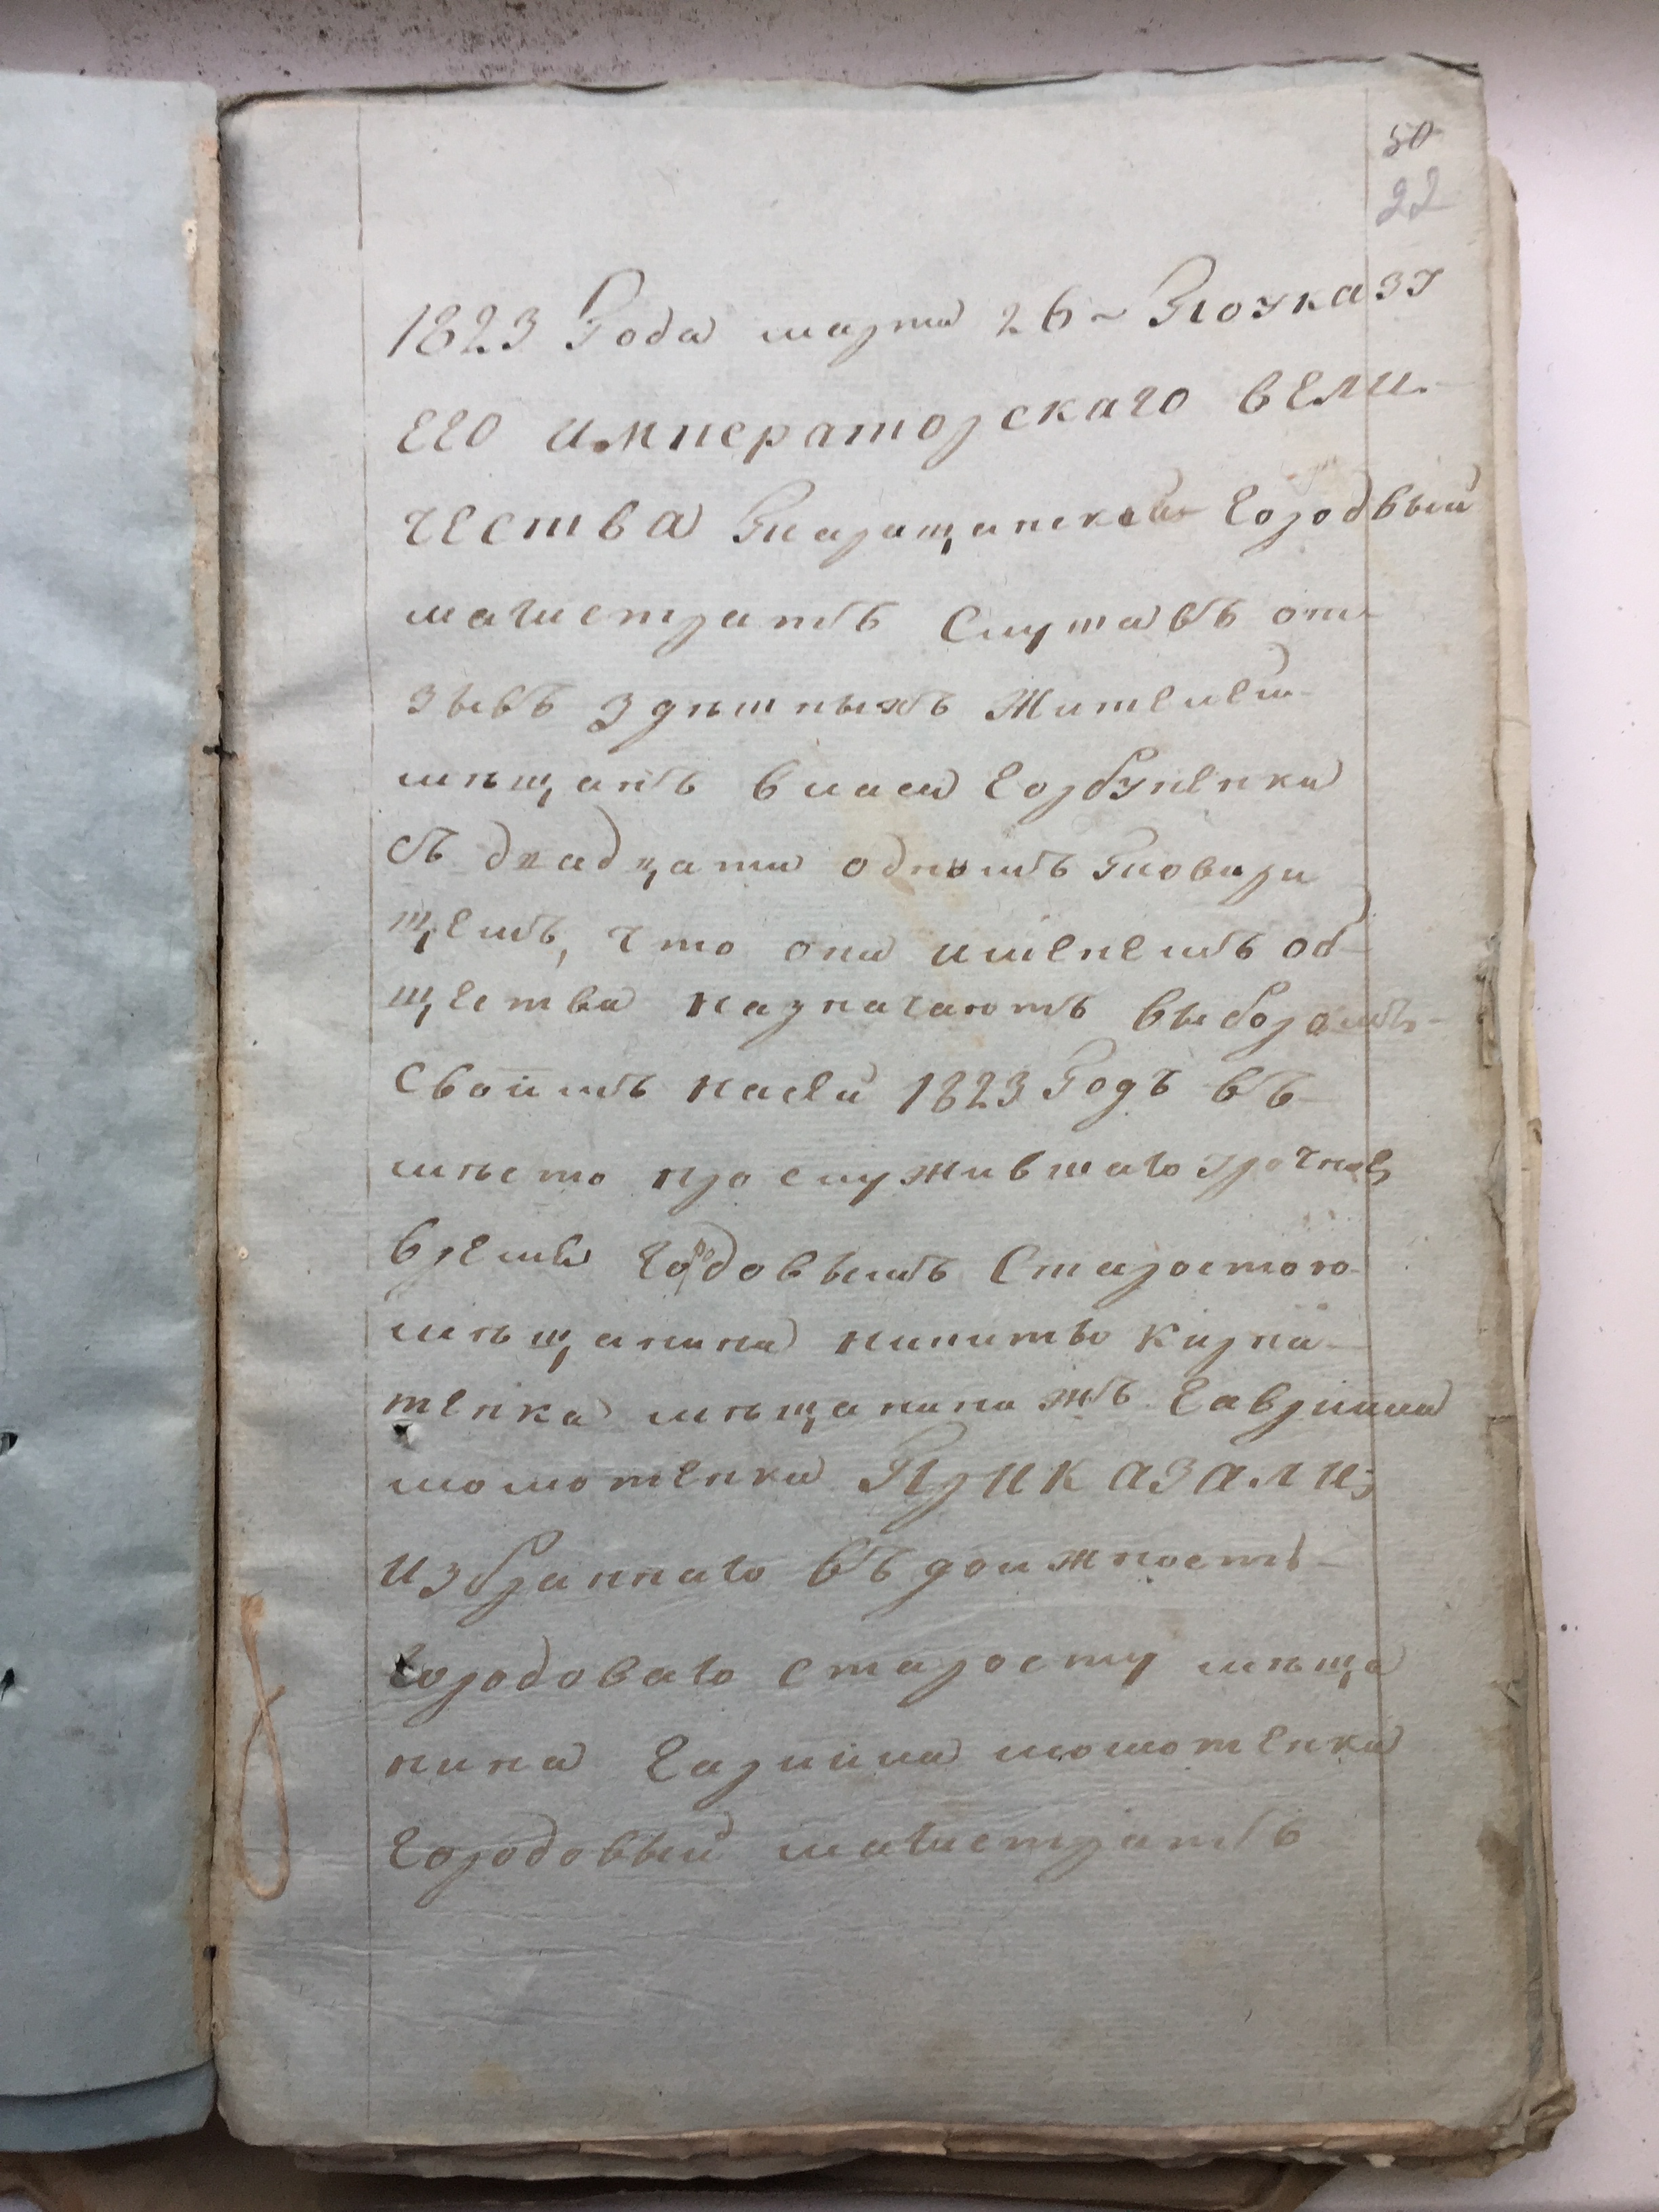 50
22
1823 Года марта 26 ~ Поуказу
его императорскаго вели-
чества Таращанский городвый
магистратъ Слушавъ от-
зывъ здѣшныхъ Жителей
мѣщанъ Власа Горбуненка
съ двадцати однымъ Товари
щемъ, что они именемъ об-
щества назначаютъ выборомъ
своимъ насей 1823 Годъ въ-
мѣсто прослужившаго урочное
время городовымъ Старостою
мѣщанина никиты
тенка мѣщанинажъ Гавриила
шомотенка Приказали;
избраннаго въ должность
городоваго старосту мѣща
нина Гариила шомотенка
городовый магистратъ